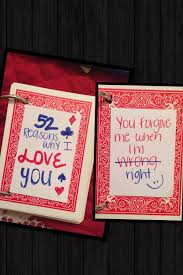 52
Reasons
why I
LOVE
YOU
You forgive
me when
I'm
wrong
right.